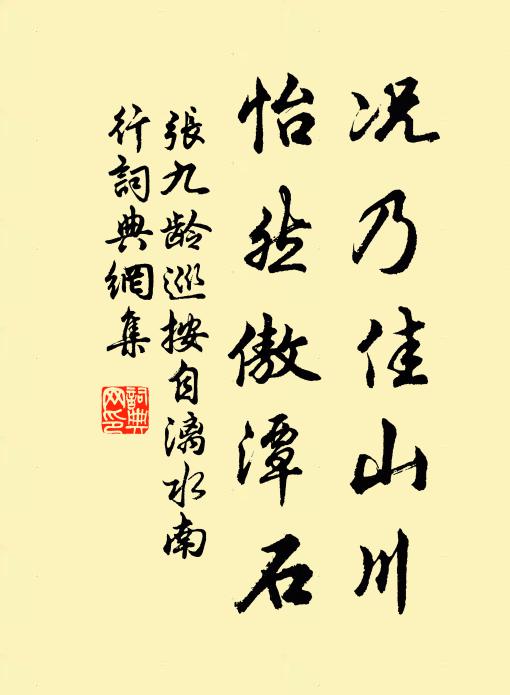 况乃佳山川
怡然傲潭石
張九龄巡按自漓水南
行詞典網集
詞典
网印